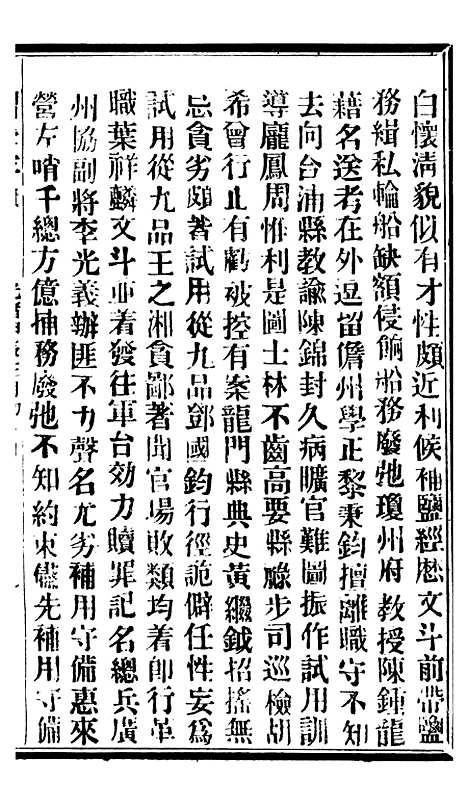 白懷清貌似有才性頗近利候補鹽經歷文斗前帶鹽
務緝私輪船缺額侵餉船務廢弛瓊州府教授陳鍾龍
藉名送考在外逗留儋州學正黎秉鈞擅離職守不知
去向台浦縣教諭陳錦封久病曠官難圖振作試用訓
導龐鳳周惟利是圖士林不齒高要縣祿步司巡檢胡
希曾行止有虧被控有案龍門縣典史黃繼鉞招搖無
忌貪劣頗著試用從九品鄧國鈞行徑詭僻任性妄為
試用從九品王之湘貪鄙著聞官場敗類均着卽行革
職葉祥麟文斗並着發往軍台効力贖罪記名總兵廣
州協副將李光義辦匪不力聲名尤劣補用守備惠來
營左哨千總方億捕務廢弛不知約束儘先補用守備